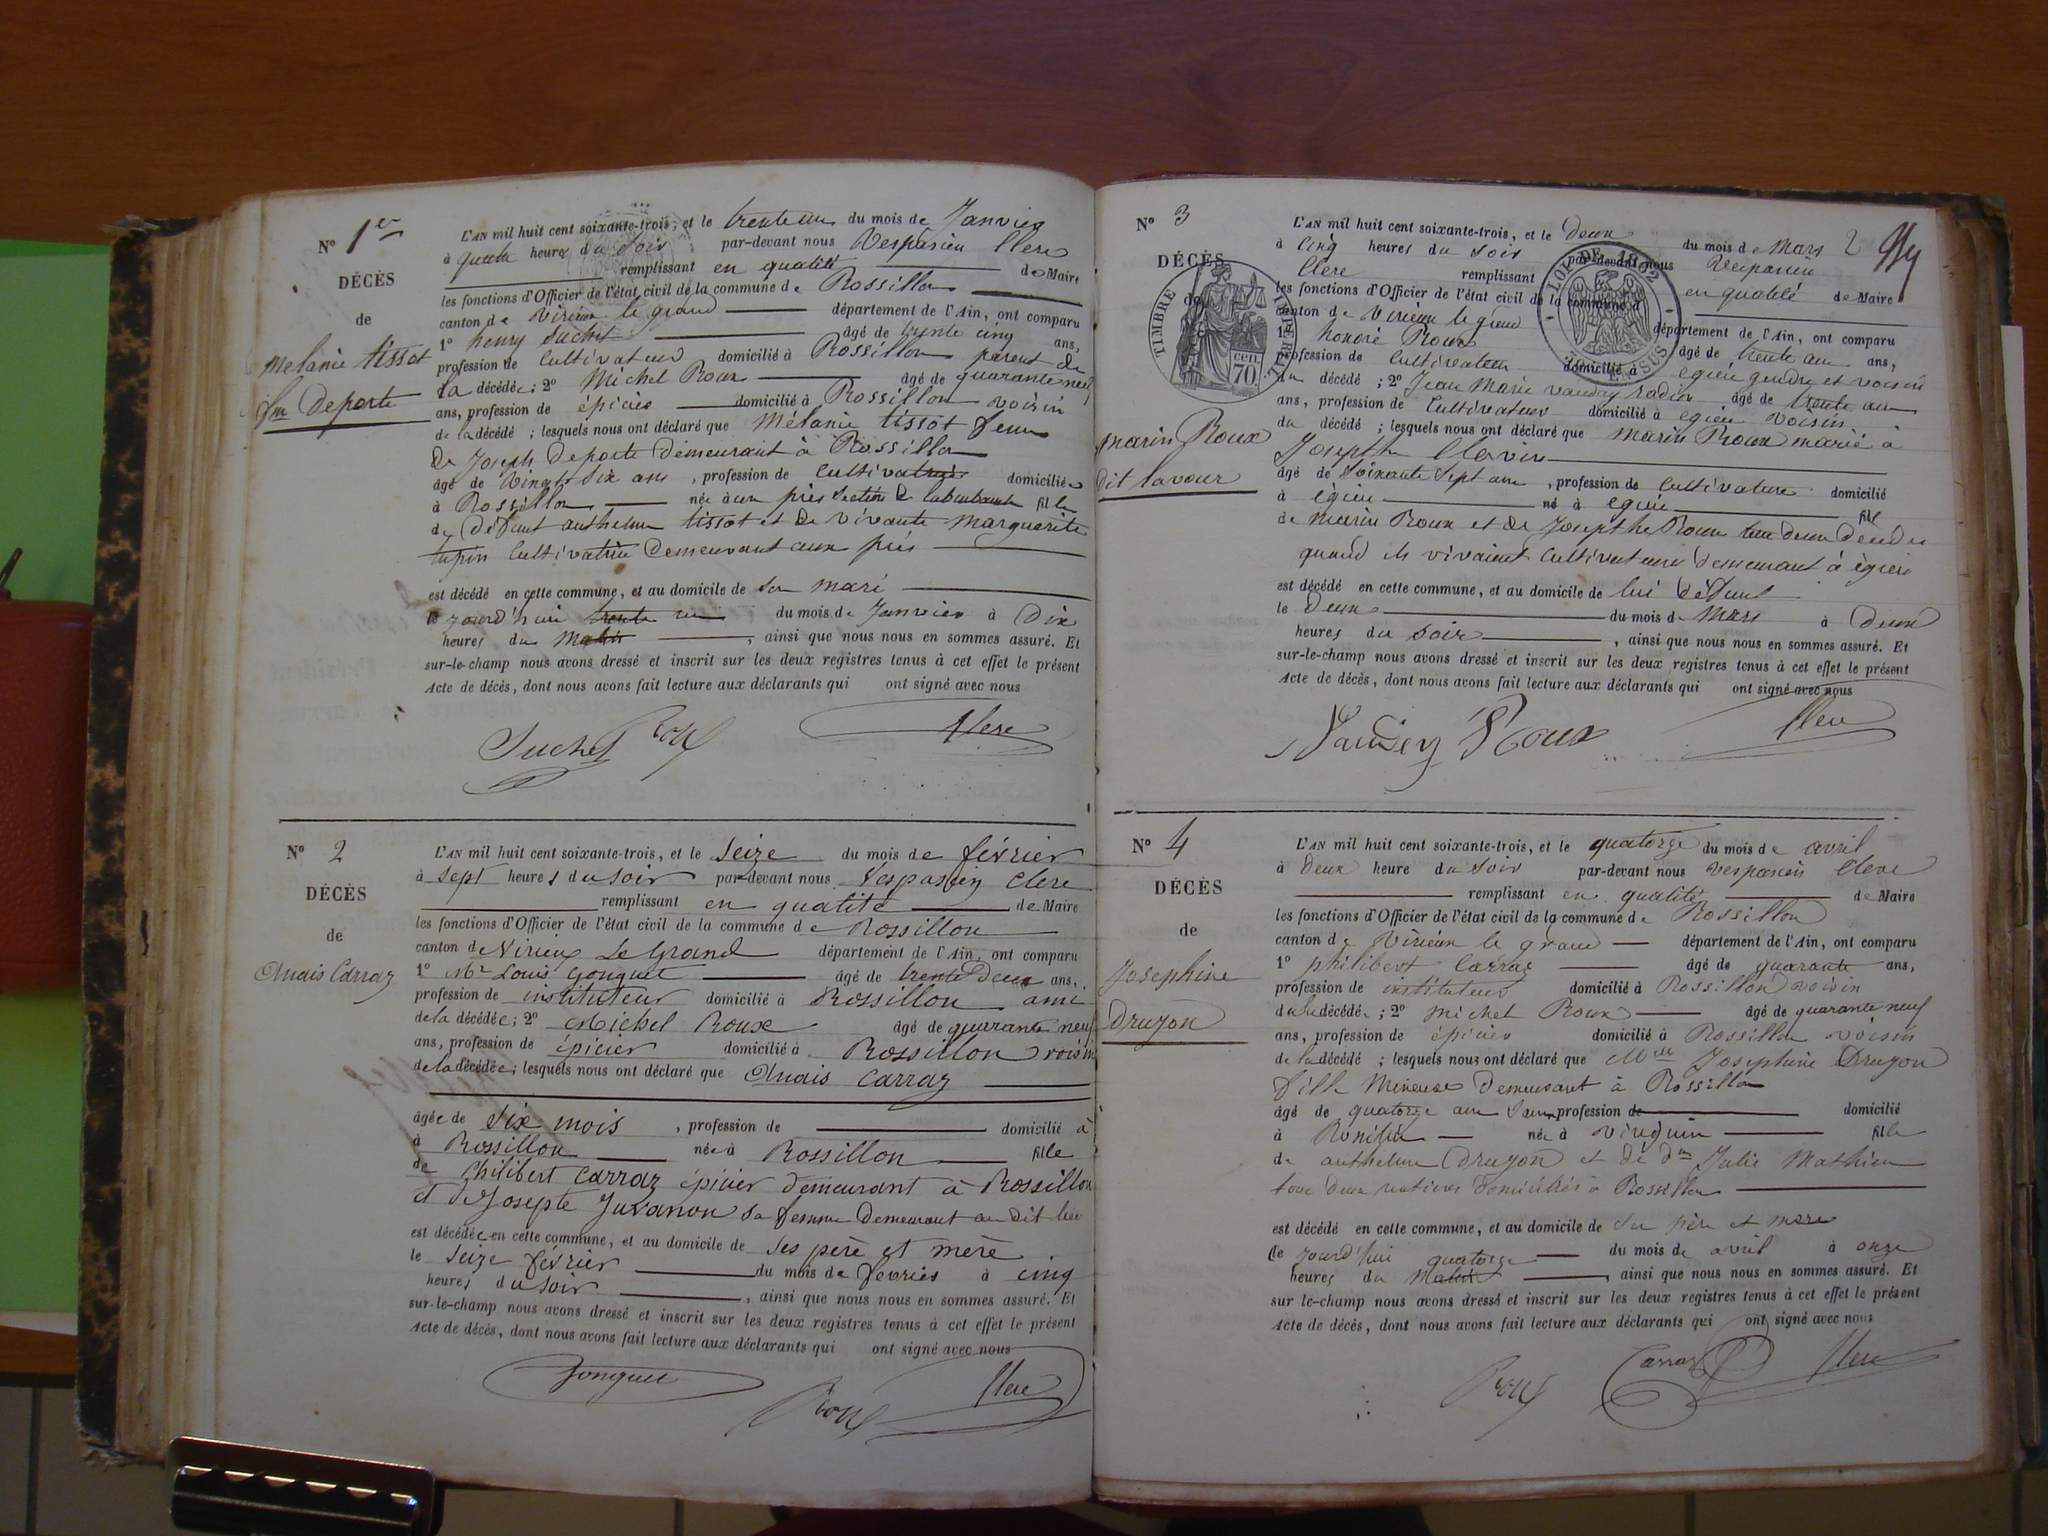 N° 1er
DÉCÈS
de
Melanie tissot
fme Deporte
L'AN mil huit cent soixante-trois, et le trente un du mois de Janvier
à quatre heures du soir par-devant nous Vespasien Clerc
remplissant en qualité de Maire
les fonctions d'Officier de l'état civil de la commune de Rossillon
canton de Virieu le grand département de l'Ain, ont comparu
1° henry Suchet âgé de trente cinq ans,
profession de Cultivateur domicilié à Rossillon parent de
la décédée; 2° Michel Roux âgé de quarante neuf
ans, profession de épicier domicilié à Rossillon voisin
de la décédé ; lesquels nous ont déclaré que Mélanie tissot femme
de Joseph Deporte demeurant à Rossillon
âgé de vingt six ans , profession de cultivatrice domiciliée
à Rossillon née aux près section de fille
de Défunt anthelme tissot et de vivante Marguerite
tupin Cultivatrice Demeurant aux près
est décédé en cette commune, et au domicile de son mari
le jourd'hui trente un du mois de Janvier à Dix
heures du Matin , ainsi que nous nous en sommes assuré. Et
sur-le-champ nous avons dressé et inscrit sur les deux registres tenus à cet effet le présent
Acte de décès, dont nous avons fait lecture aux déclarants qui ont signé avec nous
Suchet Roux Clerc
N° 2
DÉCÈS
de
Anais Carraz
L'AN mil huit cent soixante-trois, et le Seize du mois de février
à sept heures du soir par-devant nous Vespasien Clerc
remplissant en qualité de Maire
les fonctions d'Officier de l'état civil de la commune de Rossillon
canton de Virieu Le Grand département de l'Ain, ont comparu
1° Mr Louis Gonguet âgé de trente Deux ans,
profession de instituteur domicilié à Rossillon ami
de la décédée; 2° Michel Roux âgé de quarante neuf
ans, profession de épicier domicilié à Rossillon voisin
de la décédée; lesquels nous ont déclaré que Anais Carraz
âgée de six mois , profession de domicilié à
à Rossillon née à Rossillon fille
de Philibert Carraz épicier demeurant à Rossillon
et de Josepte Juvanon sa femme Demeurant au dit lieu
est décédée en cette commune, et au domicile de ses père et mère
le seize février du mois de février à cinq
heures du soir , ainsi que nous nous en sommes assuré. Et
sur-le-champ nous avons dressé et inscrit sur les deux registres tenus à cet effet le présent
Acte de décès, dont nous avons fait lecture aux déclarants qui ont signé avec nous
Gonguet Roux Clerc
N° 3
DÉCÈS
de
TIMBRE IMPÉRIAL
cen. 70
LOI DE 1862
EN SUS
2
marin Roux
dit lavour
L'AN mil huit cent soixante-trois, et le deux du mois de Mars
à cinq heures du soir par-devant nous Vespasien
Clerc remplissant en qualité de Maire
les fonctions d'Officier de l'état civil de la commune d
canton de Virieu le grand département de l'Ain, ont comparu
1° honoré Roux âgé de trente ans ans,
profession de Cultivateur domicilié à egieu gendre et voisin
du décédé ; 2° Jean Marie vauday radior âgé de trente ans
ans, profession de Cultivateur domicilié à egieu voisin
du décédé ; lesquels nous ont déclaré que Marin Roux marié à
Josepthe Clavin
âgé de soixante Sept ans , profession de Cultivateur domicilié
à egieu né à egieu fils
de Marin Roux et de Josepthe Roux tous deux Décédés
quand ils vivaient Cultivateurs demeurant à égieu
est décédé en cette commune, et au domicile de lui défunt
le Deux du mois de Mars à Deux
heures du soir , ainsi que nous nous en sommes assuré. Et
sur-le-champ nous avons dressé et inscrit sur les deux registres tenus à cet effet le présent
Acte de décès, dont nous avons fait lecture aux déclarants qui ont signé avec nous
Vaudey Roux Clerc
N° 4
DÉCÈS
de
Josephine
Druzon
L'AN mil huit cent soixante-trois, et le quatorze du mois de avril
à Deux heure du soir par-devant nous Vespasien Clerc
remplissant en qualité de Maire
les fonctions d'Officier de l'état civil de la commune de Rossillon
canton de Virieu le grand département de l'Ain, ont comparu
1° philibert Carraz âgé de quarante ans,
profession de instituteur domicilié à Rossillon voisin
du la décédé; 2° Michel Roux âgé de quarante neuf
ans, profession de épicier domicilié à Rossillon voisin
de la décédé ; lesquels nous ont déclaré que Melle Josephine Druzon
fille Mineure Demeurant à Rossillon
âgé de quatorze ans Sans profession de domicilié
à Rossillon née à virignin fille
de anthelme Druzon et de dme Julie Mathieu
tous Deux natives domiciliés à Rossillon
est décédé en cette commune, et au domicile de ses père et mère
le jourd'hui quatorze du mois de avril à onze
heures du Matin , ainsi que nous nous en sommes assuré. Et
sur le-champ nous avons dressé et inscrit sur les deux registres tenus à cet effet le présent
Acte de décès, dont nous avons fait lecture aux déclarants qui ont signé avec nous
Roux Carraz Clerc